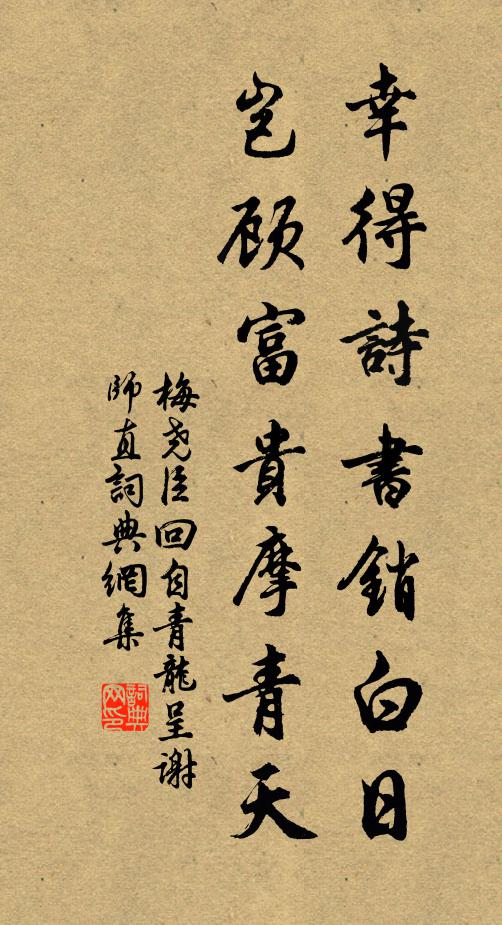 幸得詩書銷白日
豈顾富貴摩青天
梅尧臣回自青龍呈謝
师直詞典網集
詞典
网印